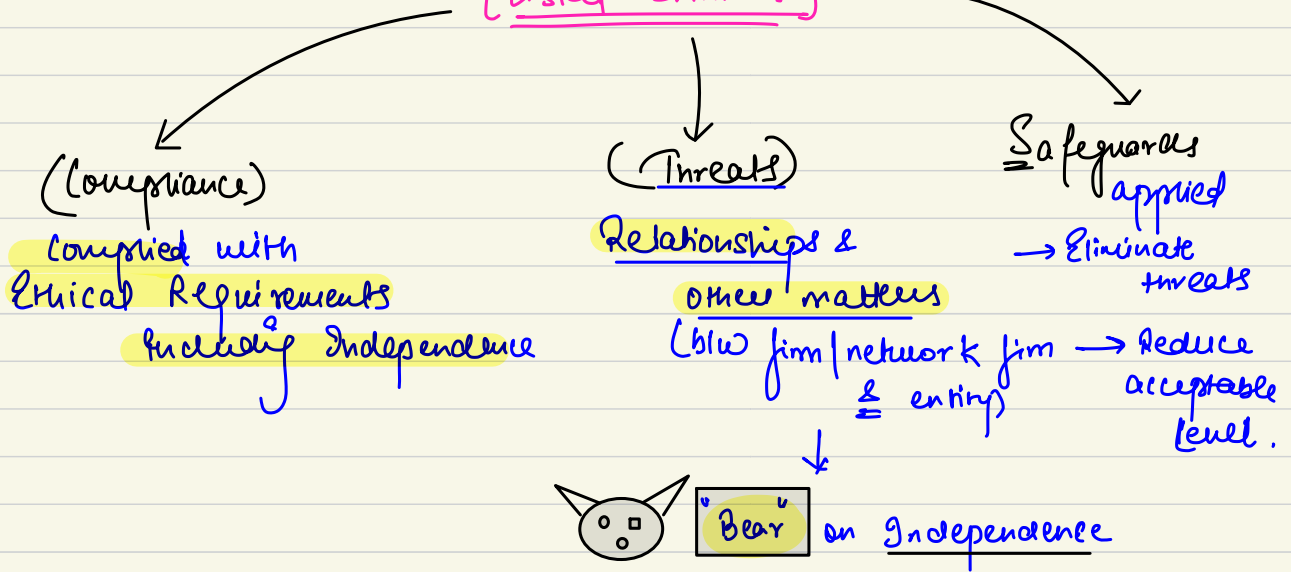 (Compliance)
Complied with
Ethical Requirements
Including Independence
(Threats)
Relationships &
other matters
(b/w firm/network firm
& entity
"Bear" on Independence
Safeguards
applied
→ Eliminate
threats
→ Reduce
acceptable
level.